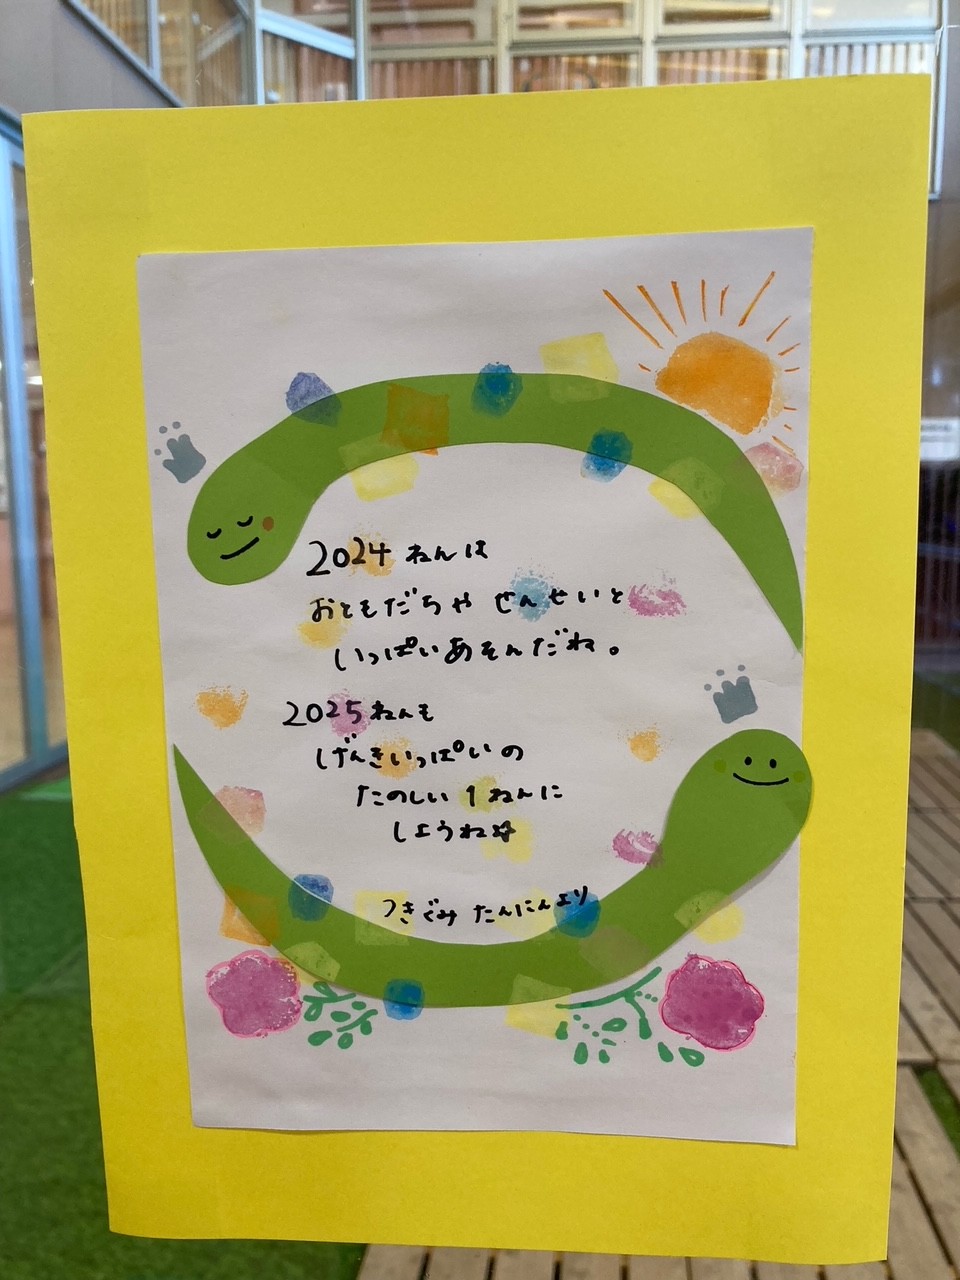 2024 ねんは
おともだちや せんせいと
いっぱいあそんだね。
2025 ねんも
げんきいっぱいの
たのしい 1 ねんに
しようね☆
つきぐみ たんにんより